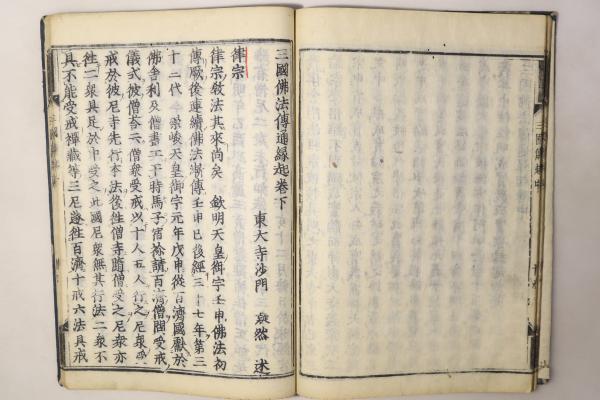 三國佛法傳通縁起卷下
東大寺沙門 凝然 述
律宗
律宗教法其來尚矣 欽明天皇御宇壬申佛法初
傳厥後連續佛法漸傳壬申已後經三十七年第三
十二代 崇峻天皇御宇元年戊申從百濟國獻於
佛舍利及僧 時馬子宿祢請百濟僧受戒
儀式彼僧答云僧衆受戒以十人五人行之尼衆受
戒於彼尼寺先行本法後往僧寺 僧受之尼衆亦
往二衆具足於中受之此國尼衆無其行法二衆不
具不能受戒禪藏等三尼遂往百濟十戒六法具戒